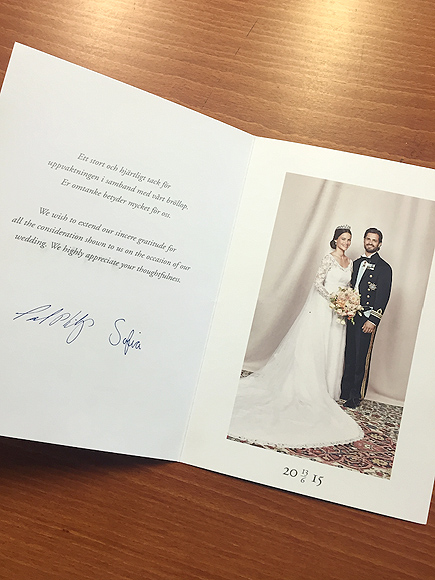 Ett stort och hjärtligt tack för
uppvaktningen i samband med vårt bröllop.
Er omtanke betyder mycket för oss.
We wish to extend our sincere gratitude for
all the consideration shown to us on the occasion of our
wedding. We highly appreciate your thoughtfulness.
Sofia
20 13/6 15